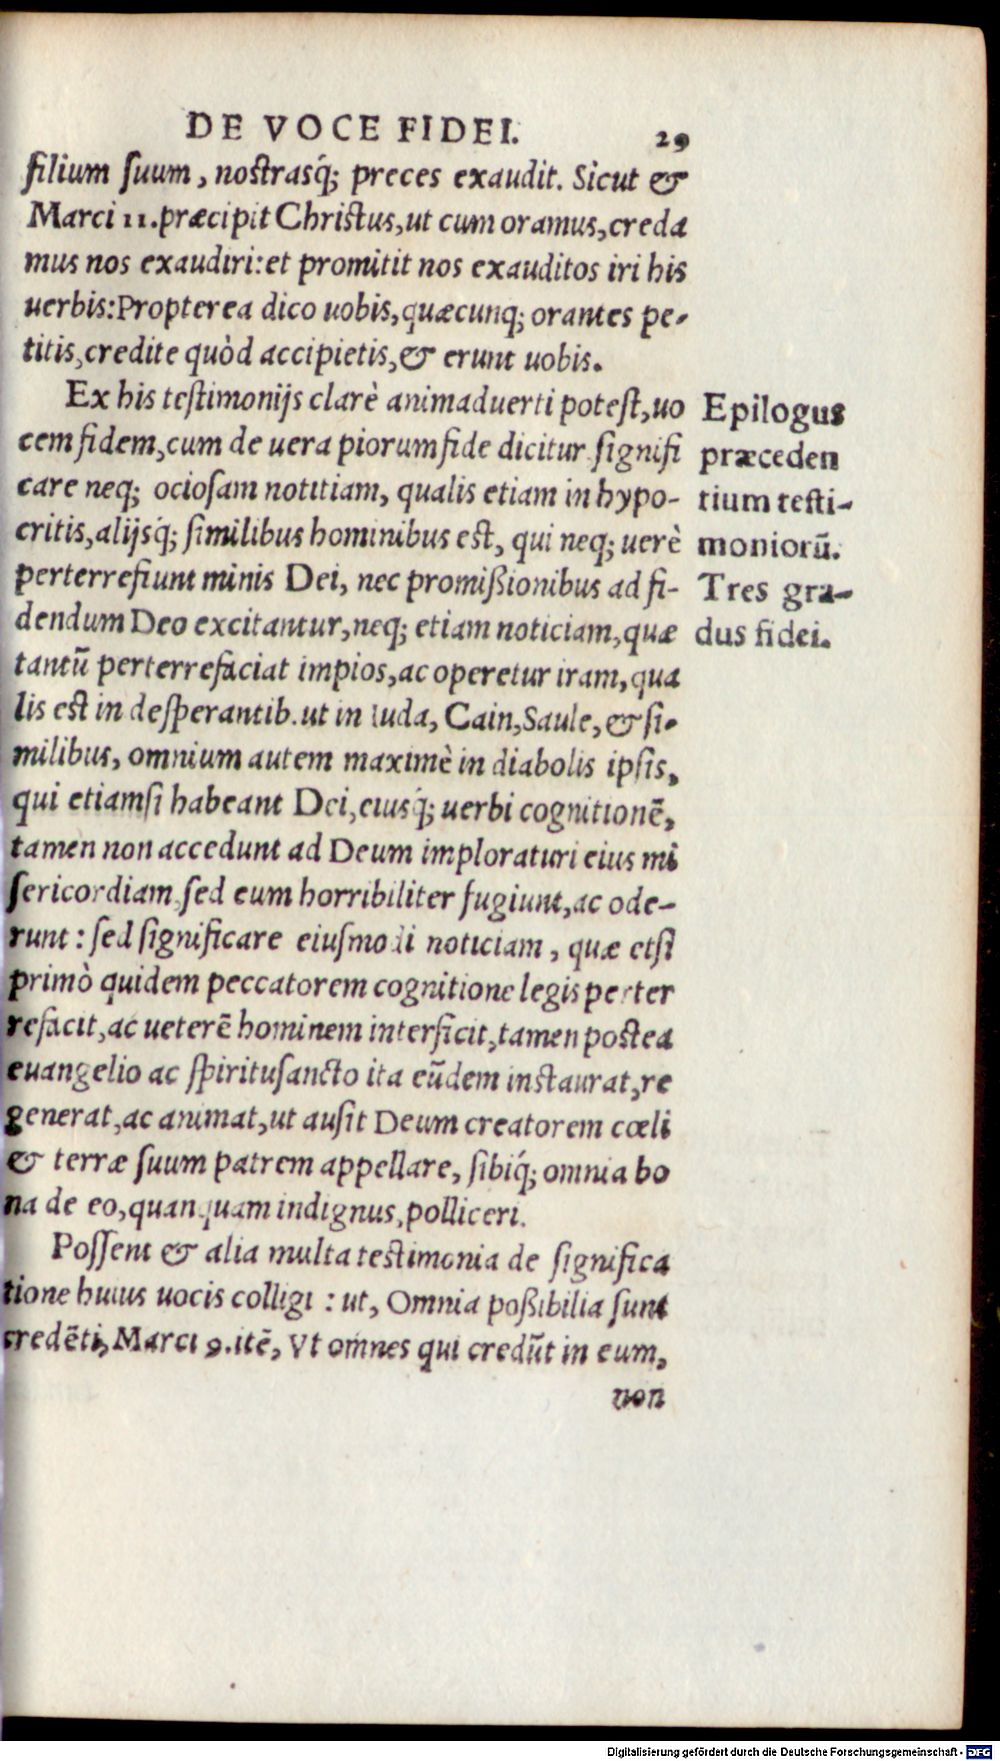 DE VOCE FIDEI. 29
filium suum, nostrasq́; preces exaudit. Sicut &
Marci 11. præcipit Christus, ut cum oramus, creda
mus nos exaudiri: et promitit nos exauditos iri his
uerbis: Propterea dico uobis, quæcunq; orantes pe-
titis, credite quòd accipietis, & erunt uobis.
Ex his testimonijs clarè animaduerti potest, uo
cem fidem, cum de uera piorum fide dicitur signifi
care neq; ociosam notitiam, qualis etiam in hypo-
critis, alijsq́; similibus hominibus est, qui neq; uerè
perterrefiunt minis Dei, nec promißionibus ad fi-
dendum Deo excitantur, neq; etiam noticiam, quæ
tantū perterrefaciat impios, ac operetur iram, qua
lis est in desperantib. ut in Iuda, Cain, Saule, & si-
milibus, omnium autem maximè in diabolis ipsis,
qui etiamsi habeant Dei, eiusq́; uerbi cognitionē,
tamen non accedunt ad Deum imploraturi eius mi
sericordiam, sed eum horribiliter fugiunt, ac ode-
runt: sed significare eiusmodi noticiam, quæ etsi
primò quidem peccatorem cognitione legis perter
refacit, ac ueterē hominem interficit, tamen postea
euangelio ac spiritusancto ita eūdem instaurat, re
generat, ac animat, ut ausit Deum creatorem cœli
& terræ suum patrem appellare, sibiq́; omnia bo
na de eo, quanquam indignus, polliceri.
Possent & alia multa testimonia de significa
tione huius uocis colligi: ut, Omnia poßibilia sunt
credēti, Marci 9. itē, Vt omnes qui credūt in eum,
non
Epilogus
præceden
tium testi-
moniorū.
Tres gra-
dus fidei.
Digitalisierung gefördert durch die Deutsche Forschungsgemeinschaft - DFG